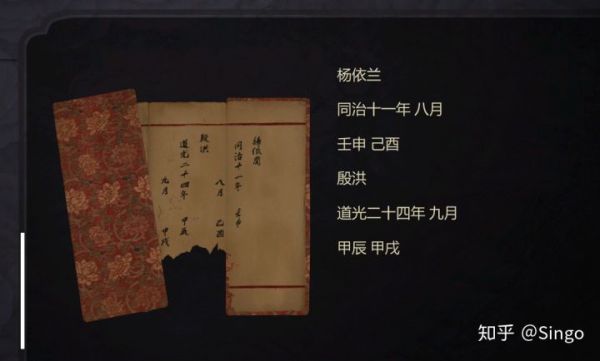 同治十一年 壬申
八月 己酉
殷洪
道光二十四年 甲辰
九月 甲戌
杨依兰
同治十一年 八月
壬申 己酉
殷洪
道光二十四年 九月
甲辰 甲戌
知乎 @Singo